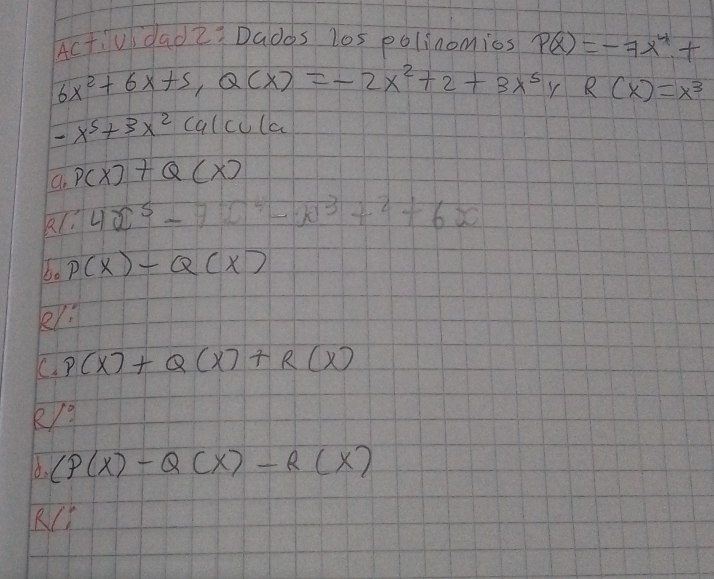 Actividad 2: Dados los polinomios P(x) = -7x⁴ +
6x² + 6x + 5, Q(x) = -2x² + 2 + 3x⁵ y R(x) = x³
- x⁵ + 3x² calcula
a. P(x) + Q(x)
R/: 4x⁵ - 7x - x³ + 2 + 6x
b. P(x) - Q(x)
R/:
c. P(x) + Q(x) + R(x)
R/:
d. (P(x) - Q(x) - R(x)
R/: